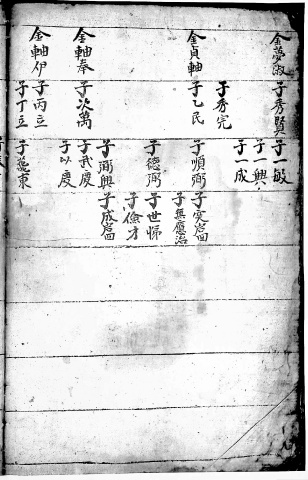 金夢淑 子秀賢 子一敏
子一興
子一成
子秀完
金貞軸 子乙民 子順弼 子寅
子無應
子德弼 子世悌
子儉才
子弼興 子成
金軸奉 子次萬 子武慶
子以慶
金軸伊 子丙立
子丁立 子萬東